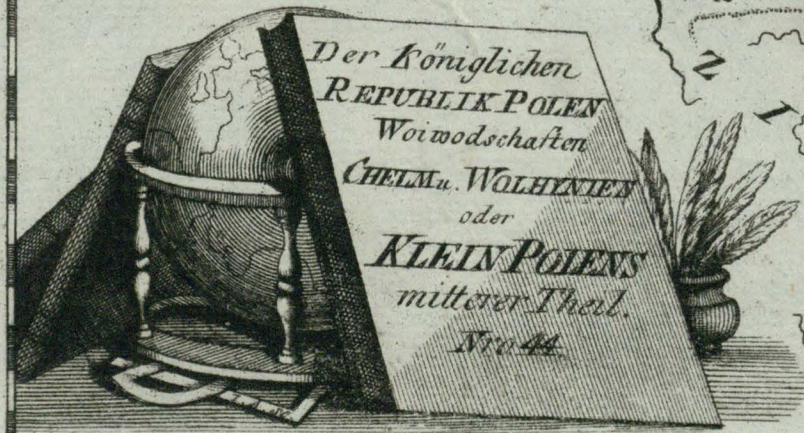 Der Königlichen
REPUBLIK POLEN
Woiwodschaften
CHELM u. WOLHYNIEN
oder
KLEIN POLENS
mitterer Theil.
Nro. 44
N
I